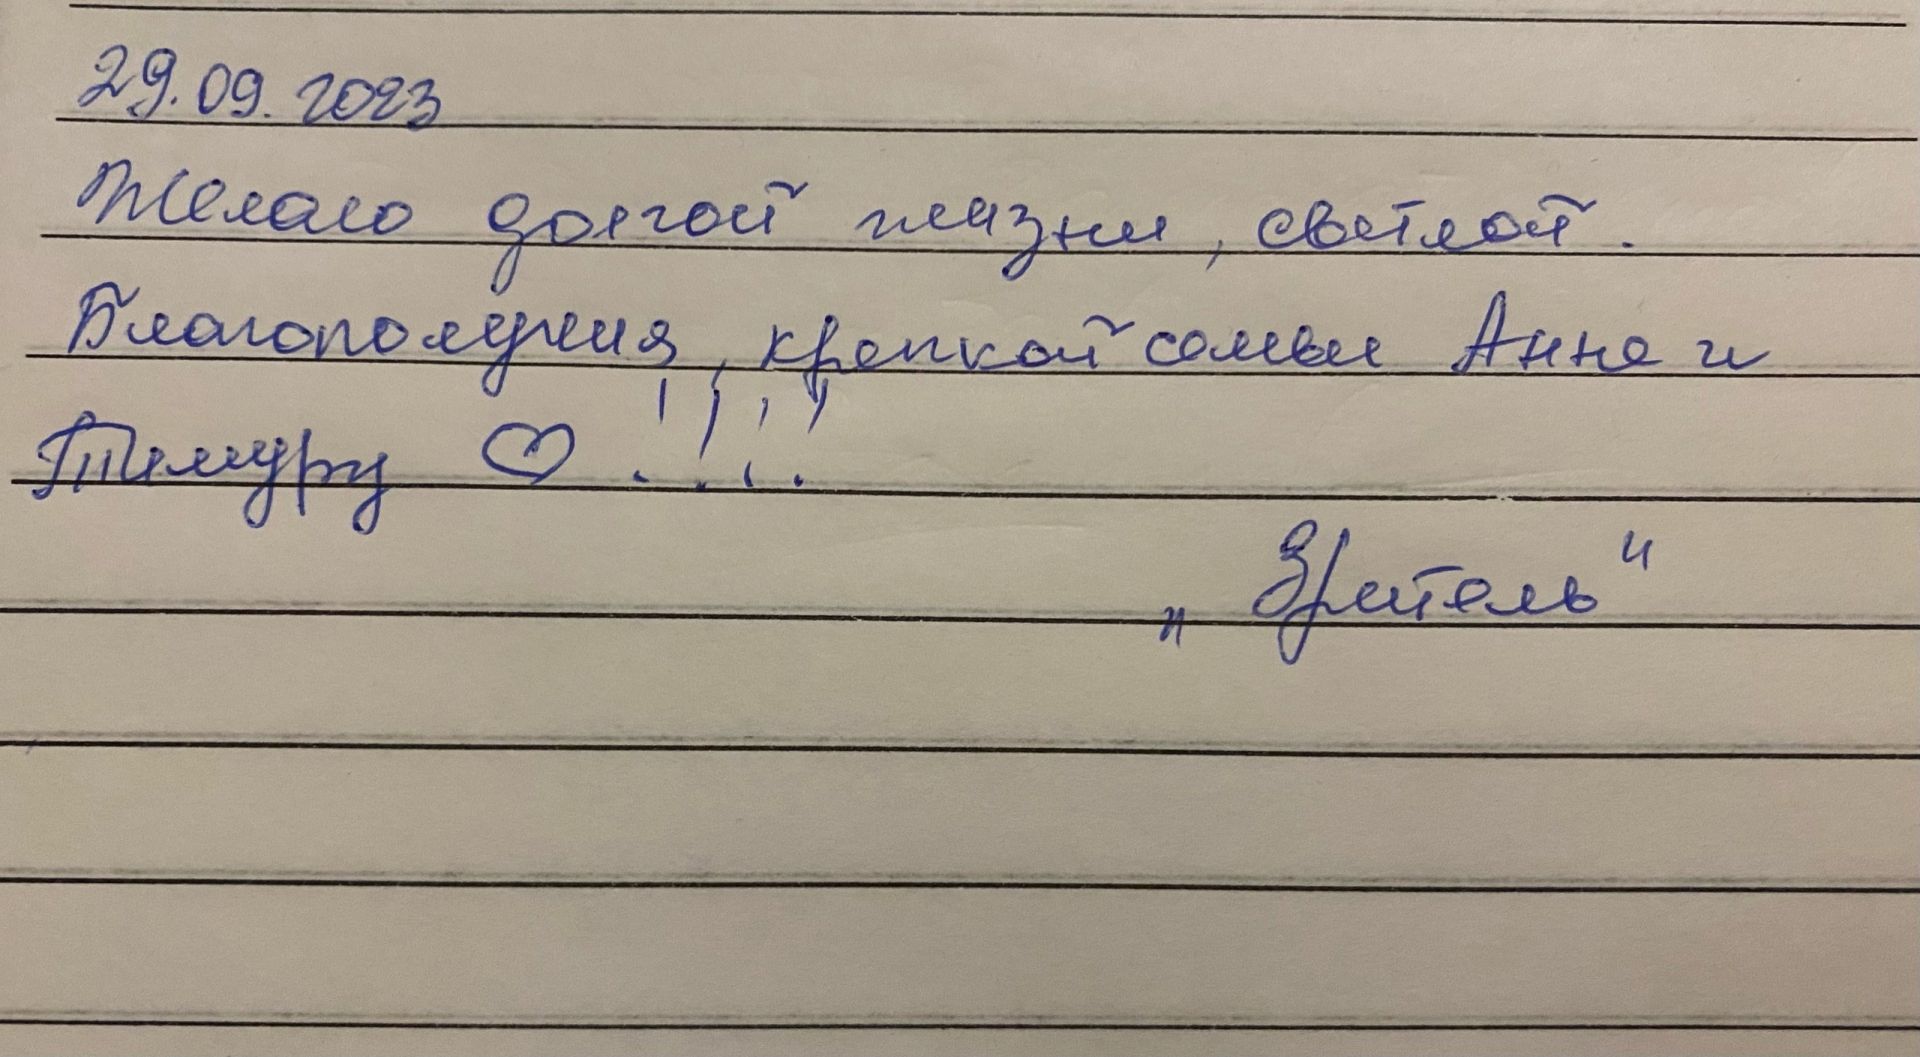 29.09.2023
Желаю долгой жизни, светлой.
Благополучия, крепкой семьи Анне и
Тимуру ♡ !!!!
„Зритель“